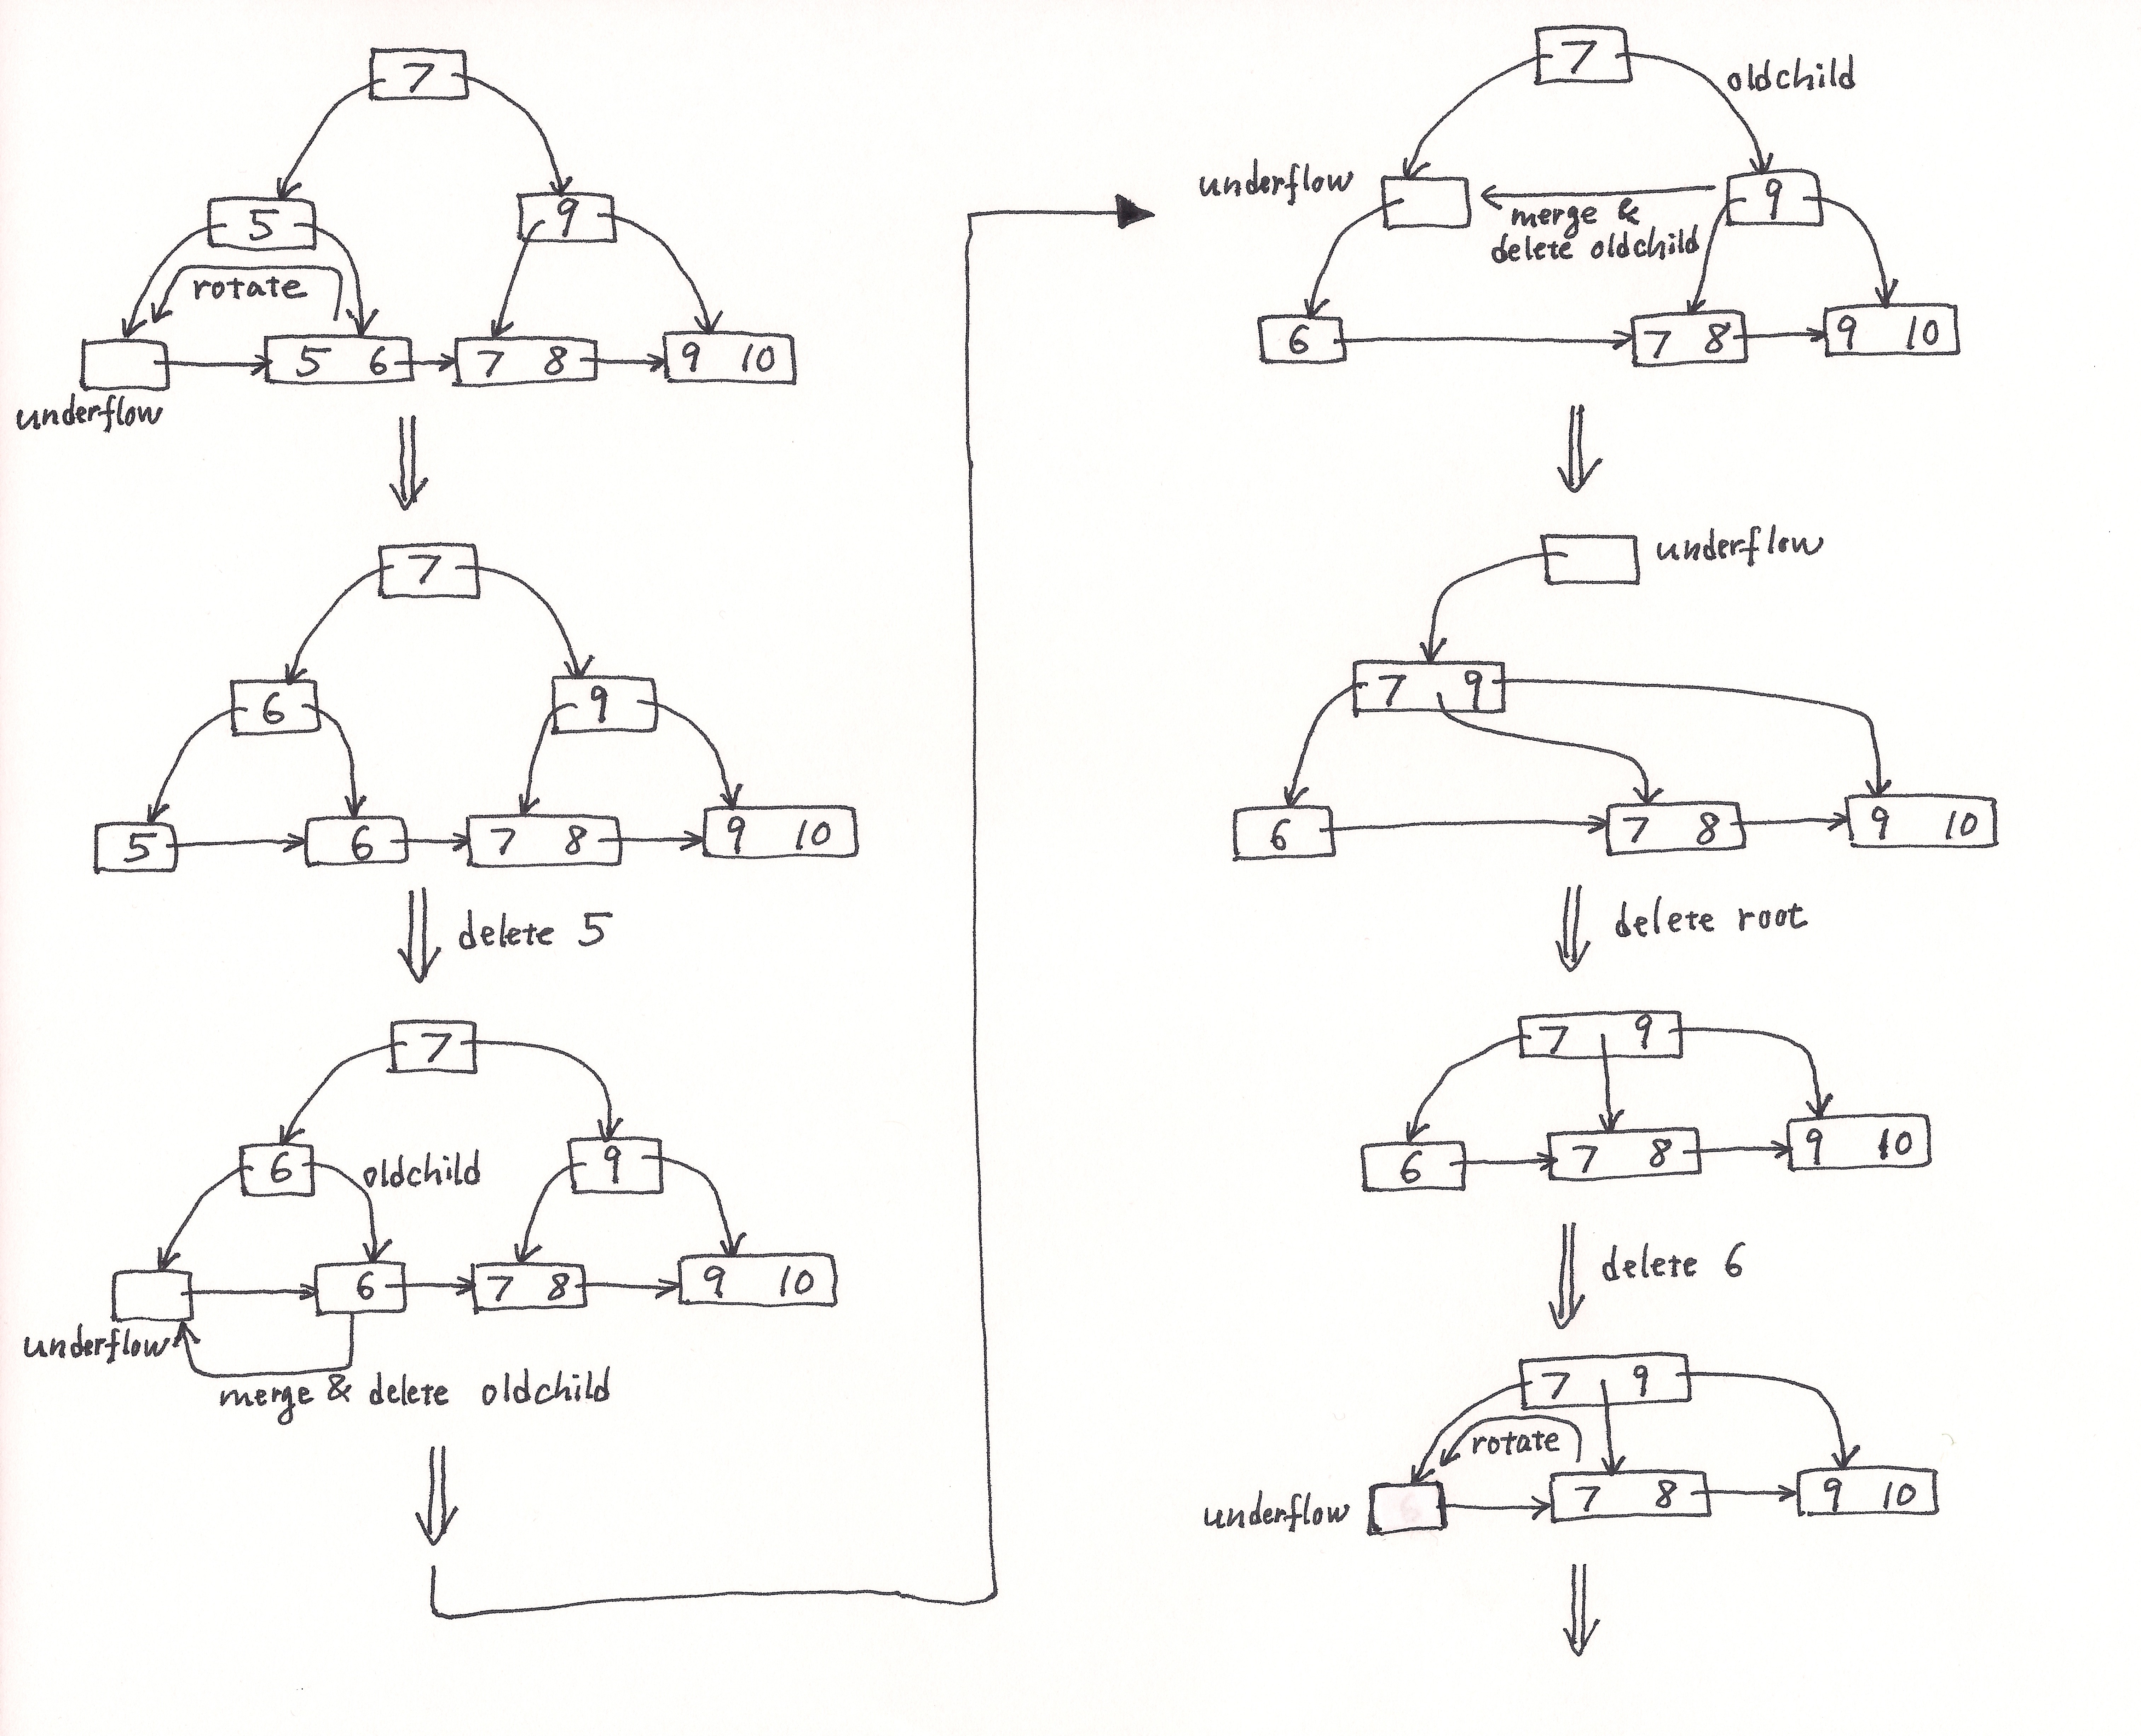 7
5 9
rotate
5 6 7 8 9 10
underflow
7
6 9
5 6 7 8 9 10
delete 5
7
6 oldchild 9
6 7 8 9 10
underflow
merge & delete oldchild
7
oldchild
underflow 9
merge &
delete oldchild
6 7 8 9 10
underflow
7 9
6 7 8 9 10
delete root
7 9
6 7 8 9 10
delete 6
7 9
rotate
7 8 9 10
underflow